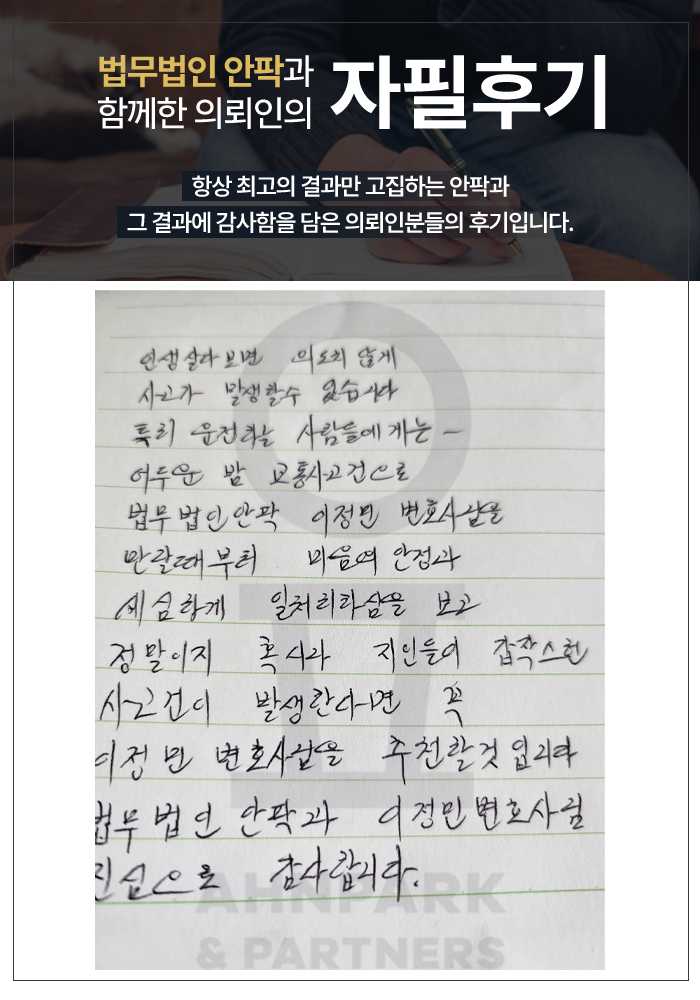 법무법인 안팍과
함께한 의뢰인의
자필후기
항상 최고의 결과만 고집하는 안팍과
그 결과에 감사함을 담은 의뢰인분들의 후기입니다.
인생 살다보면 의도치 않게
사고가 발생할수 있습니다
특히 운전하는 사람들에게는 ~
어두운 밤 교통사고건으로
법무법인안팍 이정민 변호사님을
만날때부터 마음의 안정과
세심하게 일처리하심을 보고
정말이지 혹시라 지인들이 갑작스런
사고건이 발생한다면 꼭
이정민 변호사님을 추천할것 입니다
법무법인 안팍과 이정민변호사님
진심으로 감사합니다.
AHNPARK
& PARTNERS